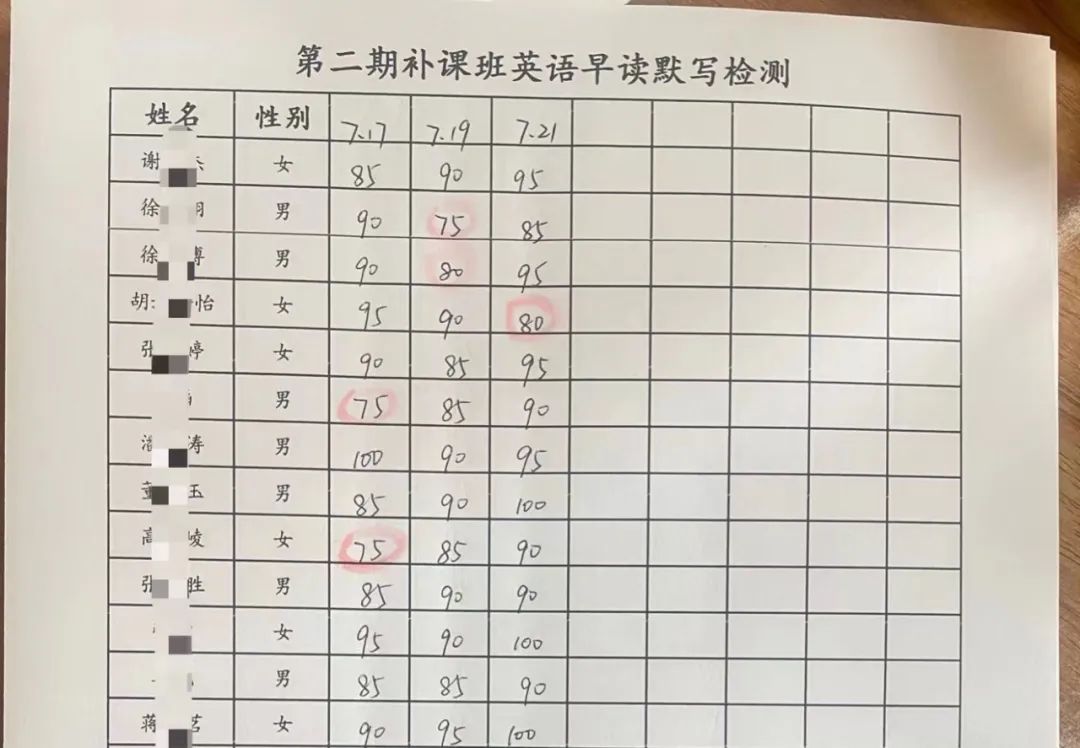 第二期补课班英语早读默写检测
姓名 性别 7.17 7.19 7.21
谢 女 85 90 95
徐 男 90 75 85
徐 男 90 80 95
胡 怡 女 95 90 80
张 婷 女 90 85 95
男 75 85 90
涛 男 100 90 95
董 玉 男 85 90 100
高 崚 女 75 85 90
张 胜 男 85 90 90
女 95 90 100
男 85 85 90
蒋 茗 女 90 95 100